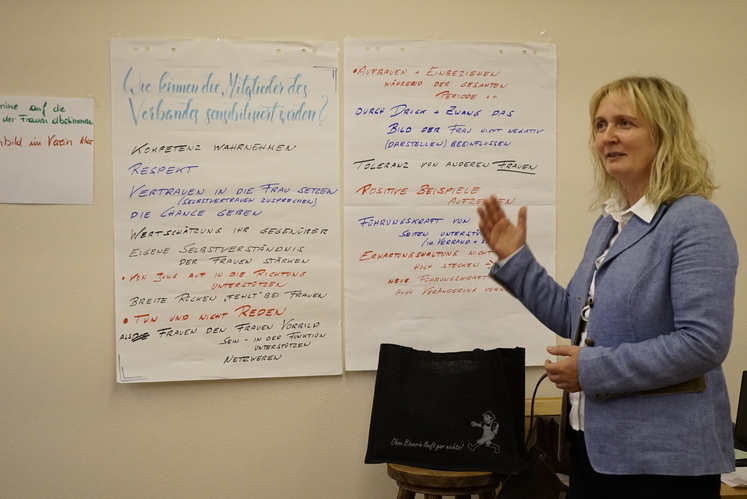 mine auf die
der Frauen abstimmen
bild im Verein
Wie können die Mitglieder des
Verbandes sensibilisiert werden?
KOMPETENZ WAHRNEHMEN
RESPEKT
VERTRAUEN IN DIE FRAU SETZEN
(SELBSTVERTRAUEN ZUSPRECHEN)
DIE CHANCE GEBEN
WERTSCHÄTZUNG IHR GEGENÜBER
EIGENE SELBSTVERSTÄNDNIS
DER FRAUEN STÄRKEN
• VON JUNG AUF IN DIE RICHTUNG
UNTERSTÜTZEN
BREITE RÜCKEN „FEHLT" BEI FRAUEN
• TUN UND NICHT REDEN
ALS FRAUEN DEN FRAUEN VORBILD
SEIN - IN DER FUNKTION
UNTERSTÜTZEN
NETZWERKEN
• AUFBAUEN + EINBEZIEHEN
WÄHREND DER GESAMTEN
PERIODE ++
DURCH DRUCK + ZWANG DAS
BILD DER FRAU NICHT NEGATIV
(DARSTELLEN) BEEINFLUSSEN
TOLERANZ VON ANDEREN FRAUEN
POSITIVE BEISPIELE
AUFZEIGEN
FÜHRUNGSKRAFT VON
SEITEN UNTERSTÜT
(IM VERBAND +
ERWARTUNGSHALTUNG NICHT
HOCH STECKEN →
NEUE FÜHRUNGSKRAFT
AUCH VERÄNDERUNG VORN
Ohne Bäuerin läuft gar nichts!